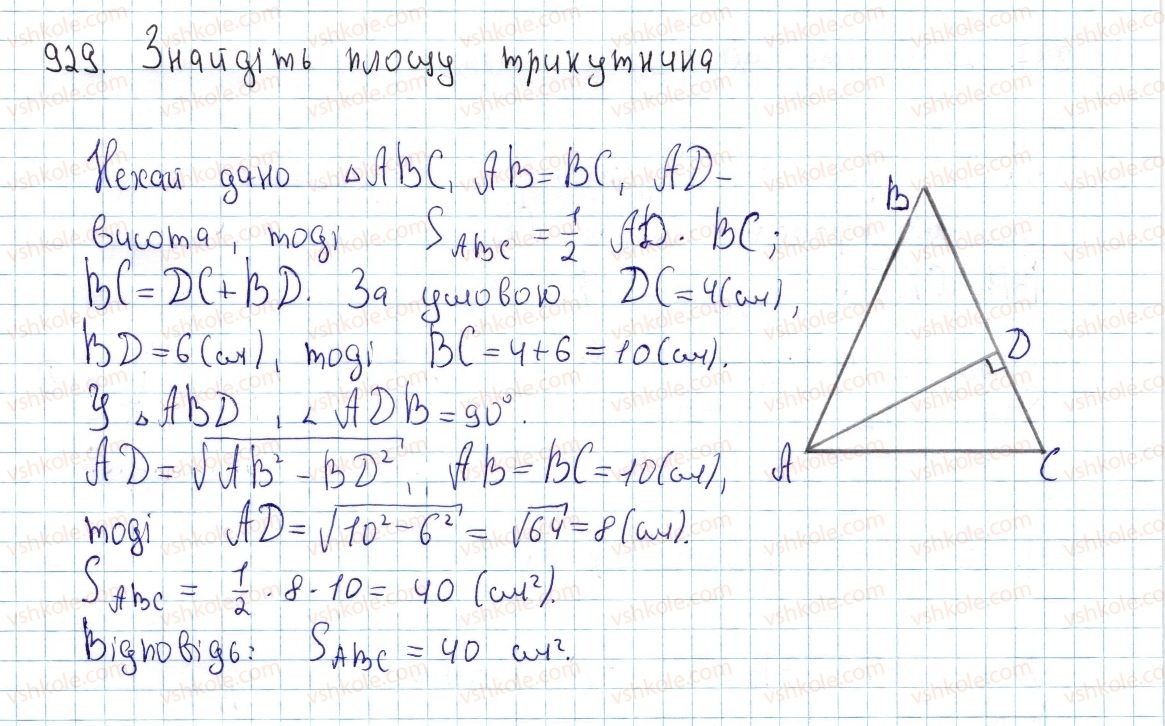 929. Знайдіть площу трикутника
Нехай дано △ABC, AB=BC, AD–
висота, тоді S_ABC = 1/2 AD · BC;
BC=DC+BD. За умовою DC=4(см),
BD=6(см), тоді BC=4+6=10(см).
У △ABD, ∠ADB=90°.
AD=√(AB²–BD²), AB=BC=10(см),
тоді AD=√(10²–6²)=√64=8(см).
S_ABC = 1/2 · 8 · 10 = 40 (см²).
Відповідь: S_ABC = 40 см².
B
D
A
C
vshkole.com